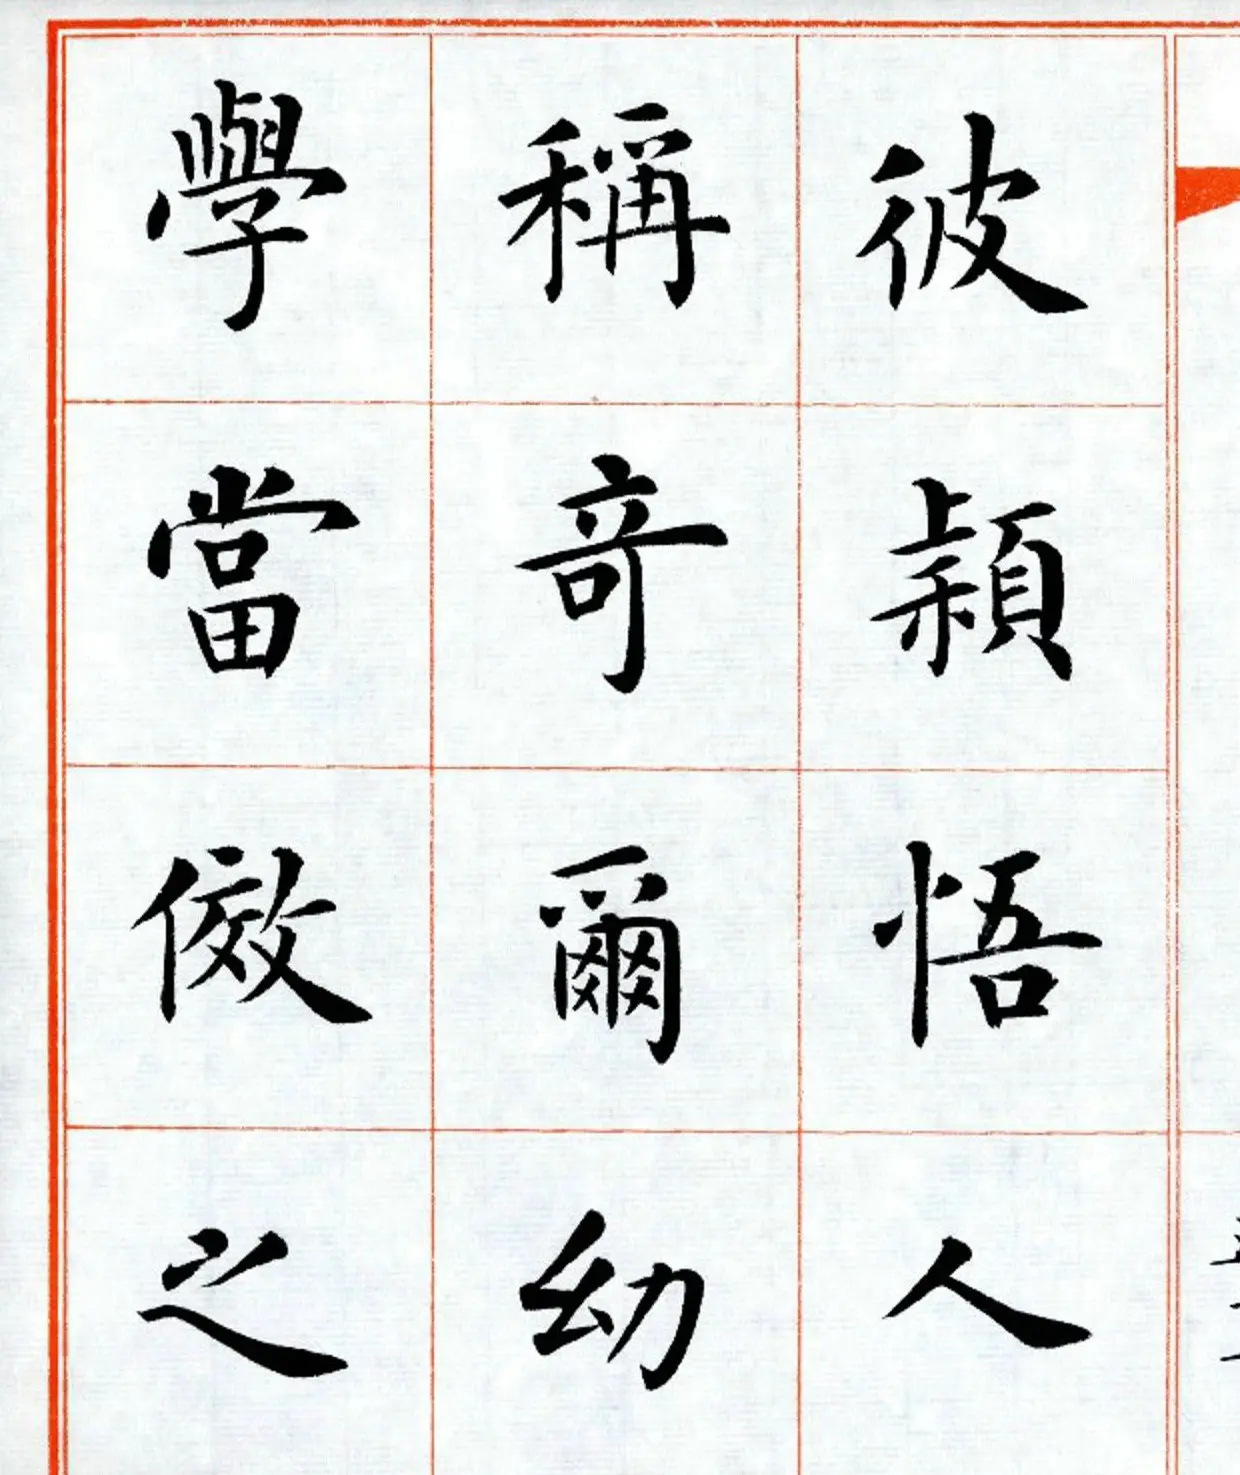 彼穎悟人
稱奇爾幼
學當傚之